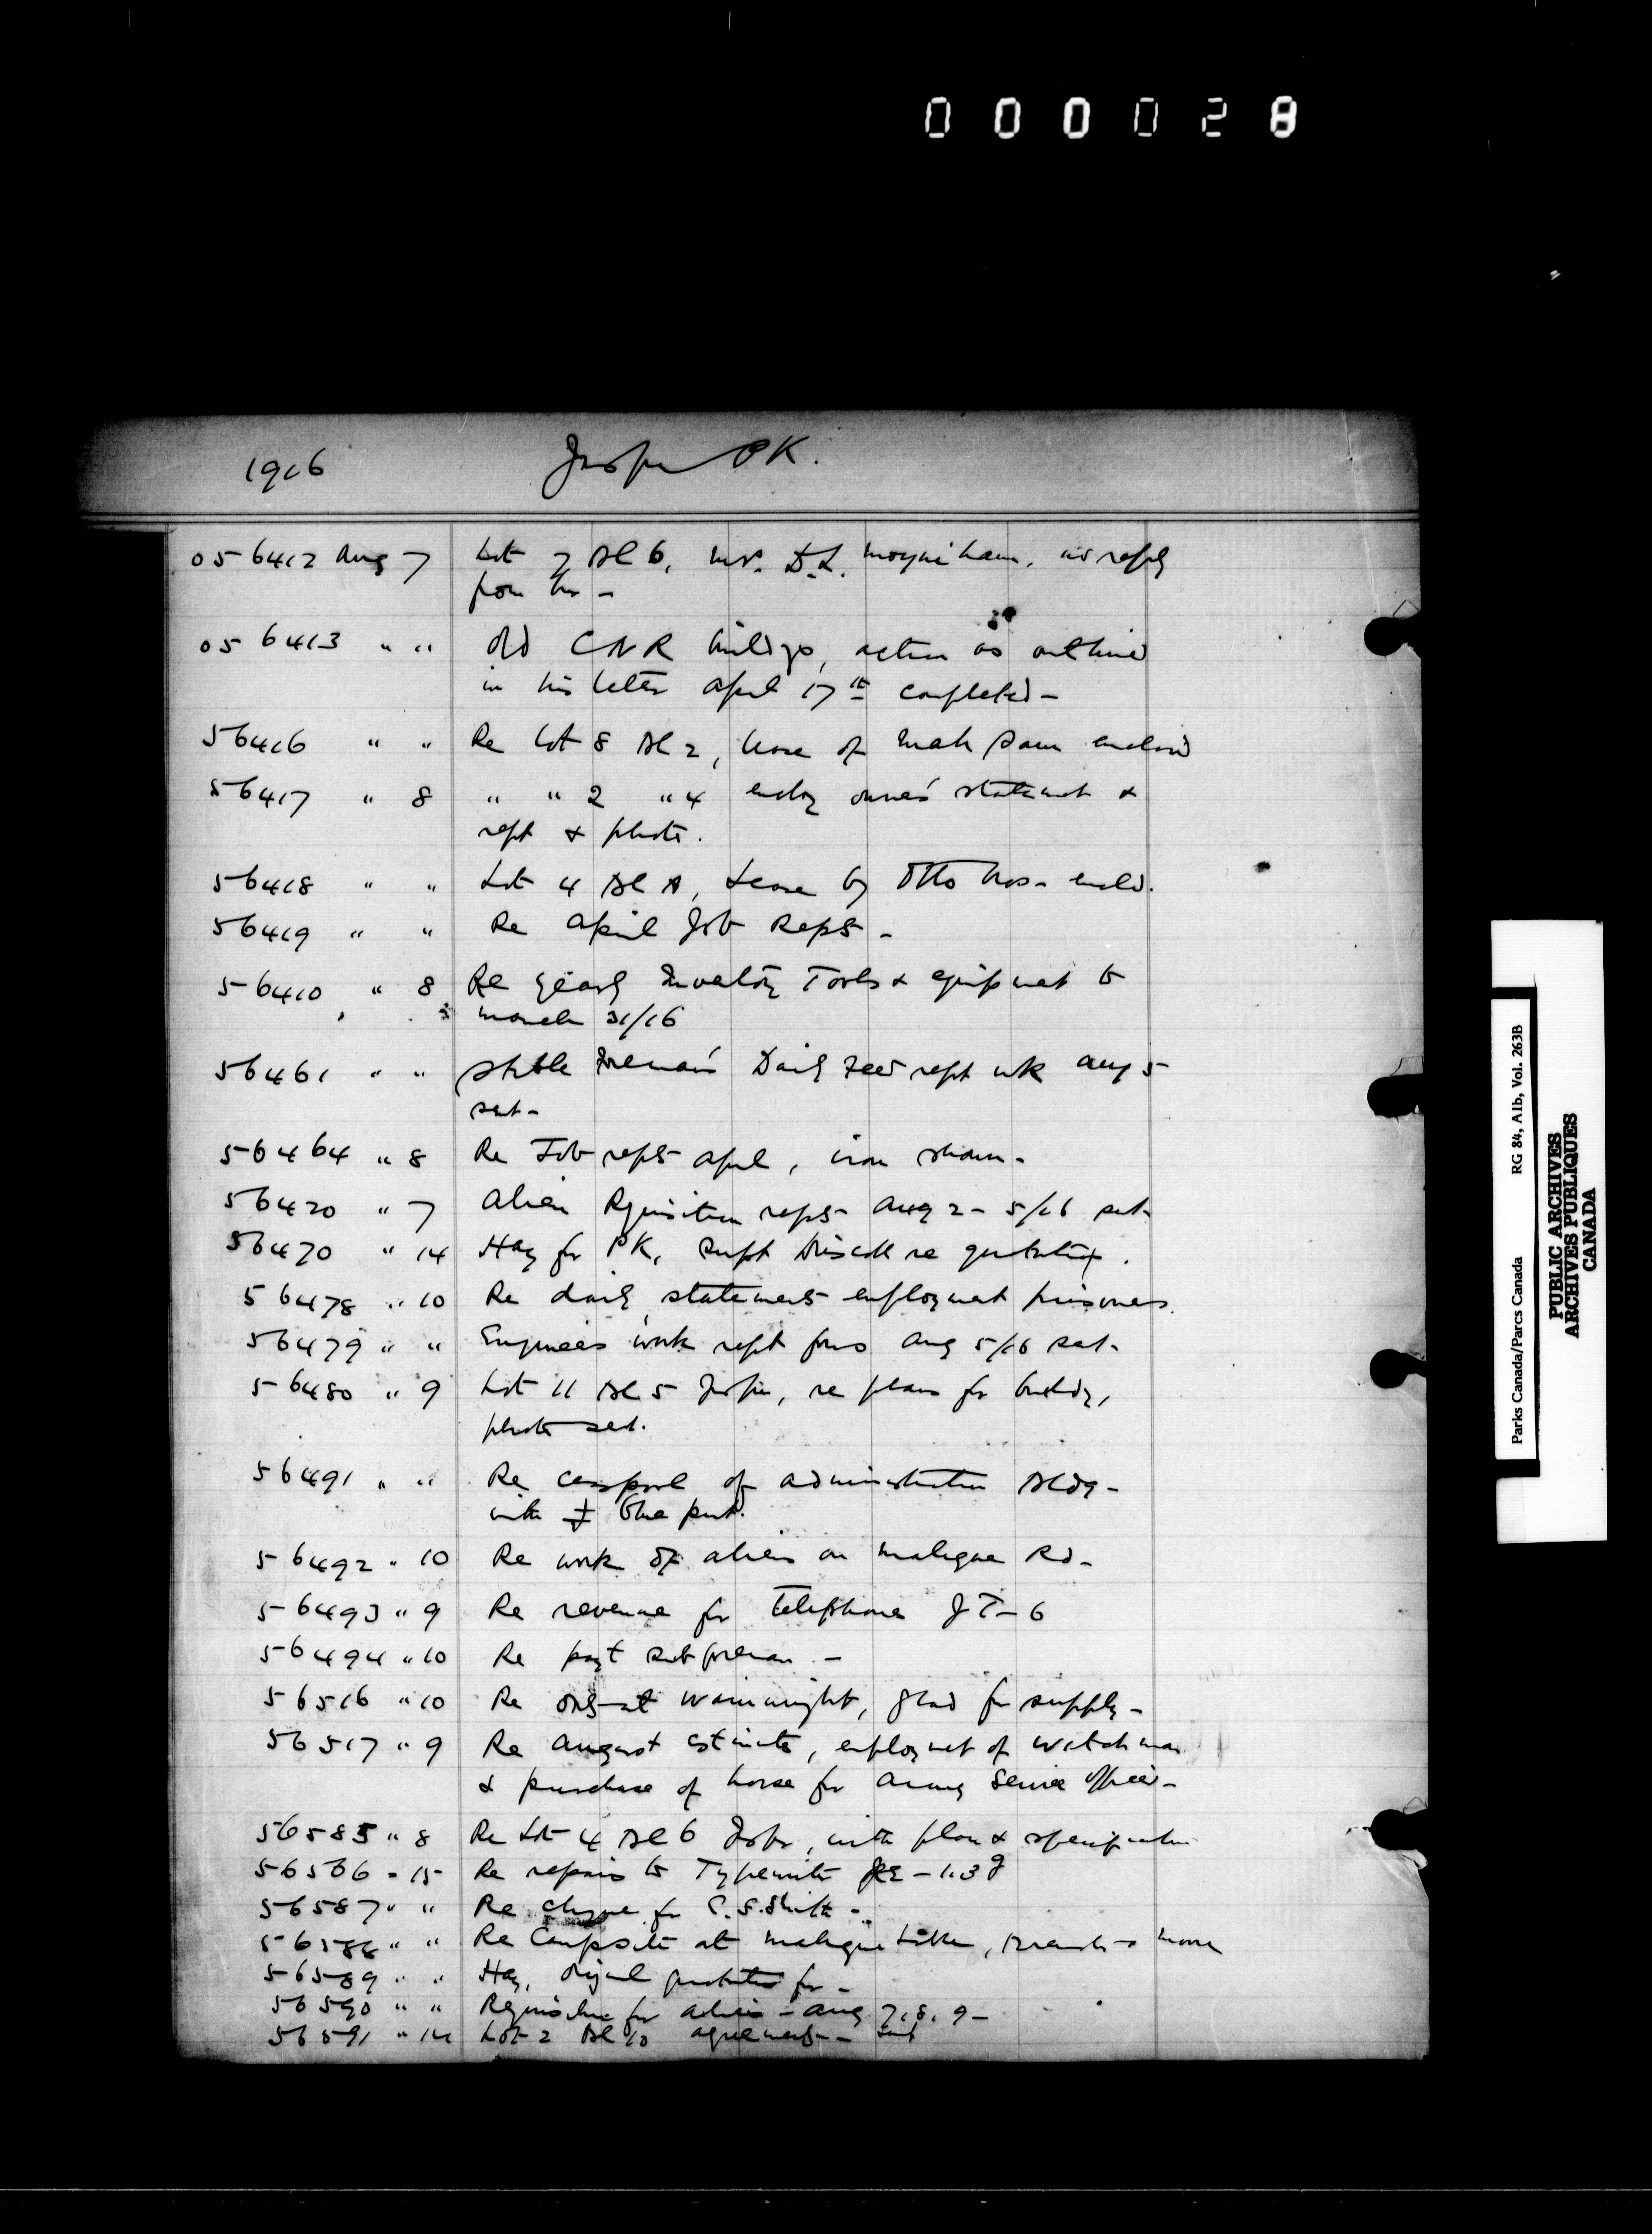 000028
1916 Jasper PK.
056412 Aug 7 Lot 7 Bl 6, Mr. D.L. Moynihan, no reply
from him -
056413 " " Old CNR buildgs, action as outlined
in his letter April 17th completed -
56416 " " Re Lot 8 Bl 2, lease of Mah Sam enclosd
56417 " 8 " " 2 " 4 enclog owner's statement &
rept & photo.
56418 " " Lot 4 Bl A, Lease by Otto Bros - encld.
56419 " " Re April Job Repts -
56410 " 8 Re yearly Inventory Tools & equipment to
March 31/16
56461 " " Stable Foreman's Daily Feed rept wk Aug 5
sent -
56464 " 8 Re Job repts April, iron shown -
56420 " 7 Alien Requisition repts - Aug 2 - 5/16 sent -
56470 " 14 Hay for PK, Supt Driscoll re quotations.
56478 " 10 Re daily statements employment prisoners.
56479 " " Engineers work rept forms Aug 5/16 sent -
56480 " 9 Lot 11 Bl 5 Jasper, re plans for buildg,
photo sent.
56491 " " Re cesspool of Administration Bldg -
with blue print.
56492 " 10 Re work of aliens on Maligne Rd -
56493 " 9 Re revenue for Telephones JT - 6
56494 " 10 Re payt subforeman -
56516 " 10 Re oats at Wainwright, glad for supply -
56517 " 9 Re August estimate, employment of watchman
& purchase of horse for Army Service Officer -
56585 " 8 Re Lot 4 Bl 6 Jasper, with plan & specification
56566 " 15 Re repairs to Typewriter
56587 " " Re cheque for C. S.
56588 " " Re Campsite at Maligne
56589 " " Hay, original quotation for -
56590 " " Requisition for aliens - Aug 7, 8, 9 -
56591 " 14 Lot 2 Bl 10 agreements - sent
Parks Canada/Parcs Canada RG 84, A1b, Vol. 263B
PUBLIC ARCHIVES
ARCHIVES PUBLIQUES
CANADA